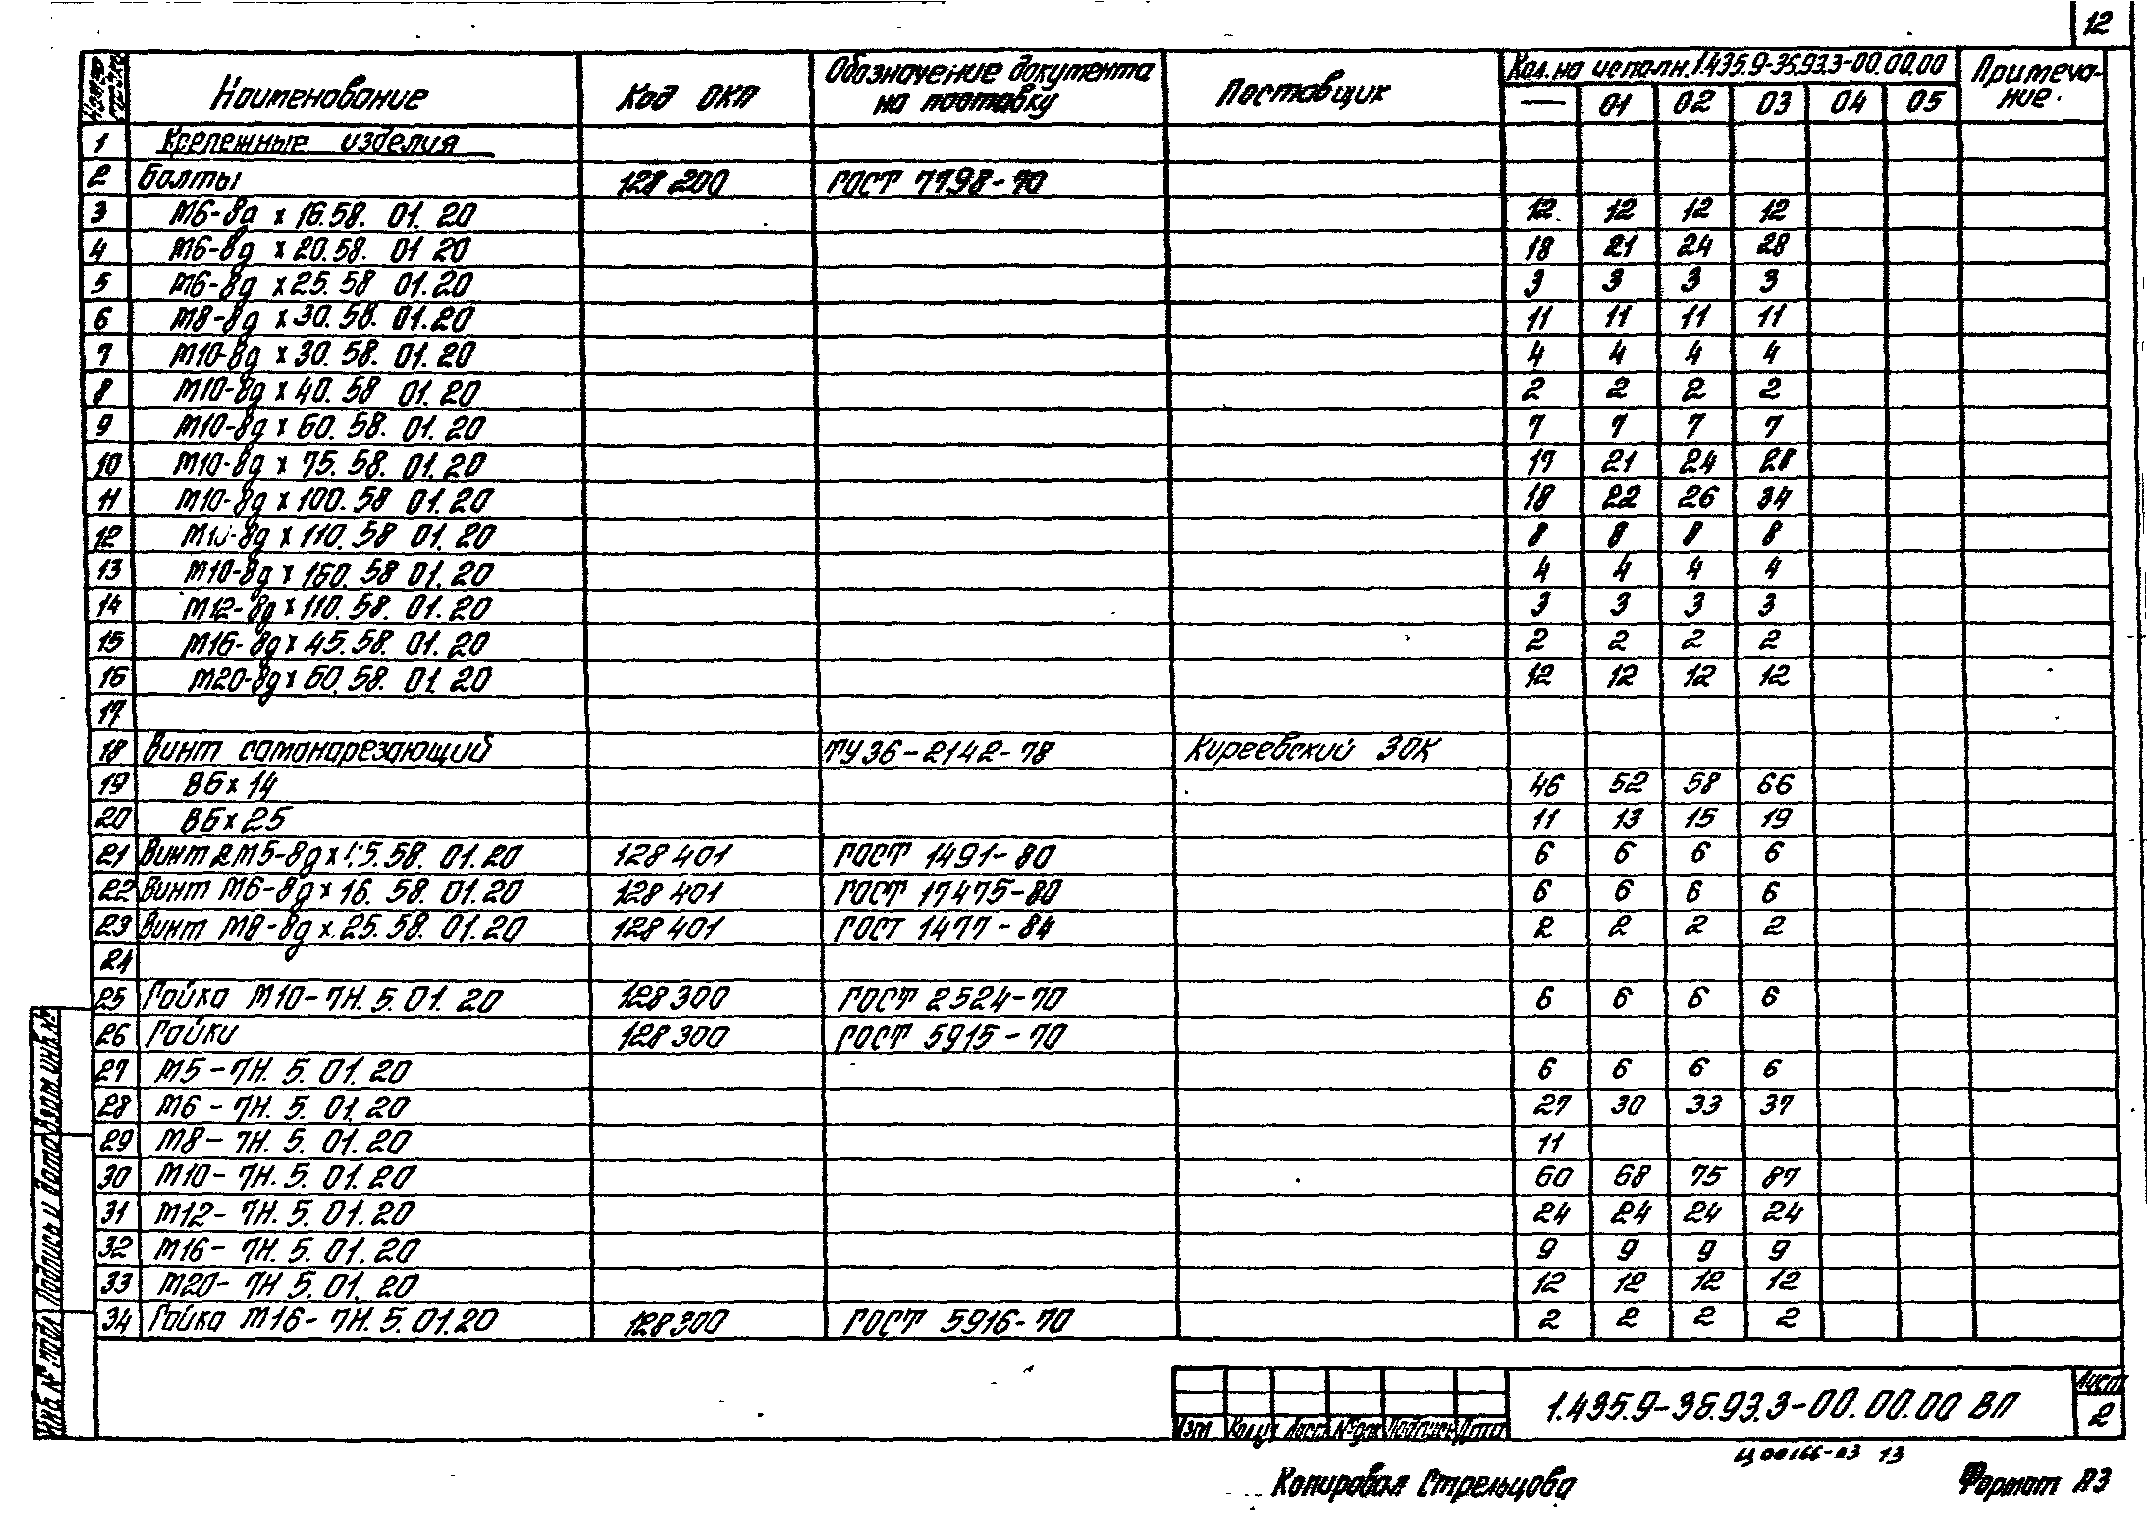 12
Номер строки Наименование Код ОКП Обозначение документа на поставку Поставщик Кол. на исполн. 1.435.9-36.93.3-00.00.00 Примечание
— 01 02 03 04 05
1 Крепежные изделия
2 Болты 128 200 ГОСТ 7798-70
3 М6-8g х 16.58. 01. 20 12 12 12 12
4 М6-8g х 20.58. 01 20 18 21 24 28
5 М6-8g х 25.58 01.20 3 3 3 3
6 М8-8g х 30.58. 01.20 11 11 11 11
7 М10-8g х 30. 58. 01. 20 4 4 4 4
8 М10-8g х 40. 58 01. 20 2 2 2 2
9 М10-8g х 60. 58. 01. 20 7 7 7 7
10 М10-8g х 75. 58. 01. 20 17 21 24 28
11 М10-8g х 100.58 01. 20 18 22 26 34
12 М10-8g х 110. 58 01. 20 8 8 8 8
13 М10-8g х 160. 58 01. 20 4 4 4 4
14 М12-8g х 110. 58. 01. 20 3 3 3 3
15 М16-8g х 45. 58. 01. 20 2 2 2 2
16 М20-8g х 60. 58. 01. 20 12 12 12 12
17
18 Винт самонарезающий ТУ 36-2142-78 Киреевский ЗОК
19 В6 х 14 46 52 58 66
20 В6 х 25 11 13 15 19
21 Винт 2М5-8g х 15.58. 01. 20 128 401 ГОСТ 1491-80 6 6 6 6
22 Винт М6-8g х 16. 58. 01.20 128 401 ГОСТ 17475-80 6 6 6 6
23 Винт М8-8g х. 25.58. 01.20 128 401 ГОСТ 1477-84 2 2 2 2
24
25 Гайка М10-7Н. 5. 01. 20 128 300 ГОСТ 2524-70 6 6 6 6
26 Гайки 128 300 ГОСТ 5915-70
27 М5-7Н. 5. 01. 20 6 6 6 6
28 М6-7Н. 5. 01. 20 27 30 33 37
29 М8-7Н. 5. 01. 20 11
30 М10-7Н. 5. 01. 20 60 68 75 87
31 М12-7Н. 5. 01. 20 24 24 24 24
32 М16-7Н. 5. 01. 20 9 9 9 9
33 М20-7Н 5. 01. 20 12 12 12 12
34 Гайка М16-7Н. 5. 01.20 128300 ГОСТ 5916-70 2 2 2 2
Инв № подл Подпись и дата Взам инв. №
Изм Кол.уч Лист № док Подпись Дата
1.435.9-36.93.3-00.00.00 ВП
Лист
2
Ц00166-03 13
Копировал Стрельцова Формат А3